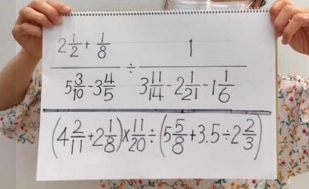 2 1/2 + 1/8 ÷ 1
5 3/10 - 3 4/5   3 11/14 - 2 1/21 - 1 1/6
(4 2/11 + 2 1/8) × 11/20 ÷ (5 5/8 + 3.5 ÷ 2 2/3)